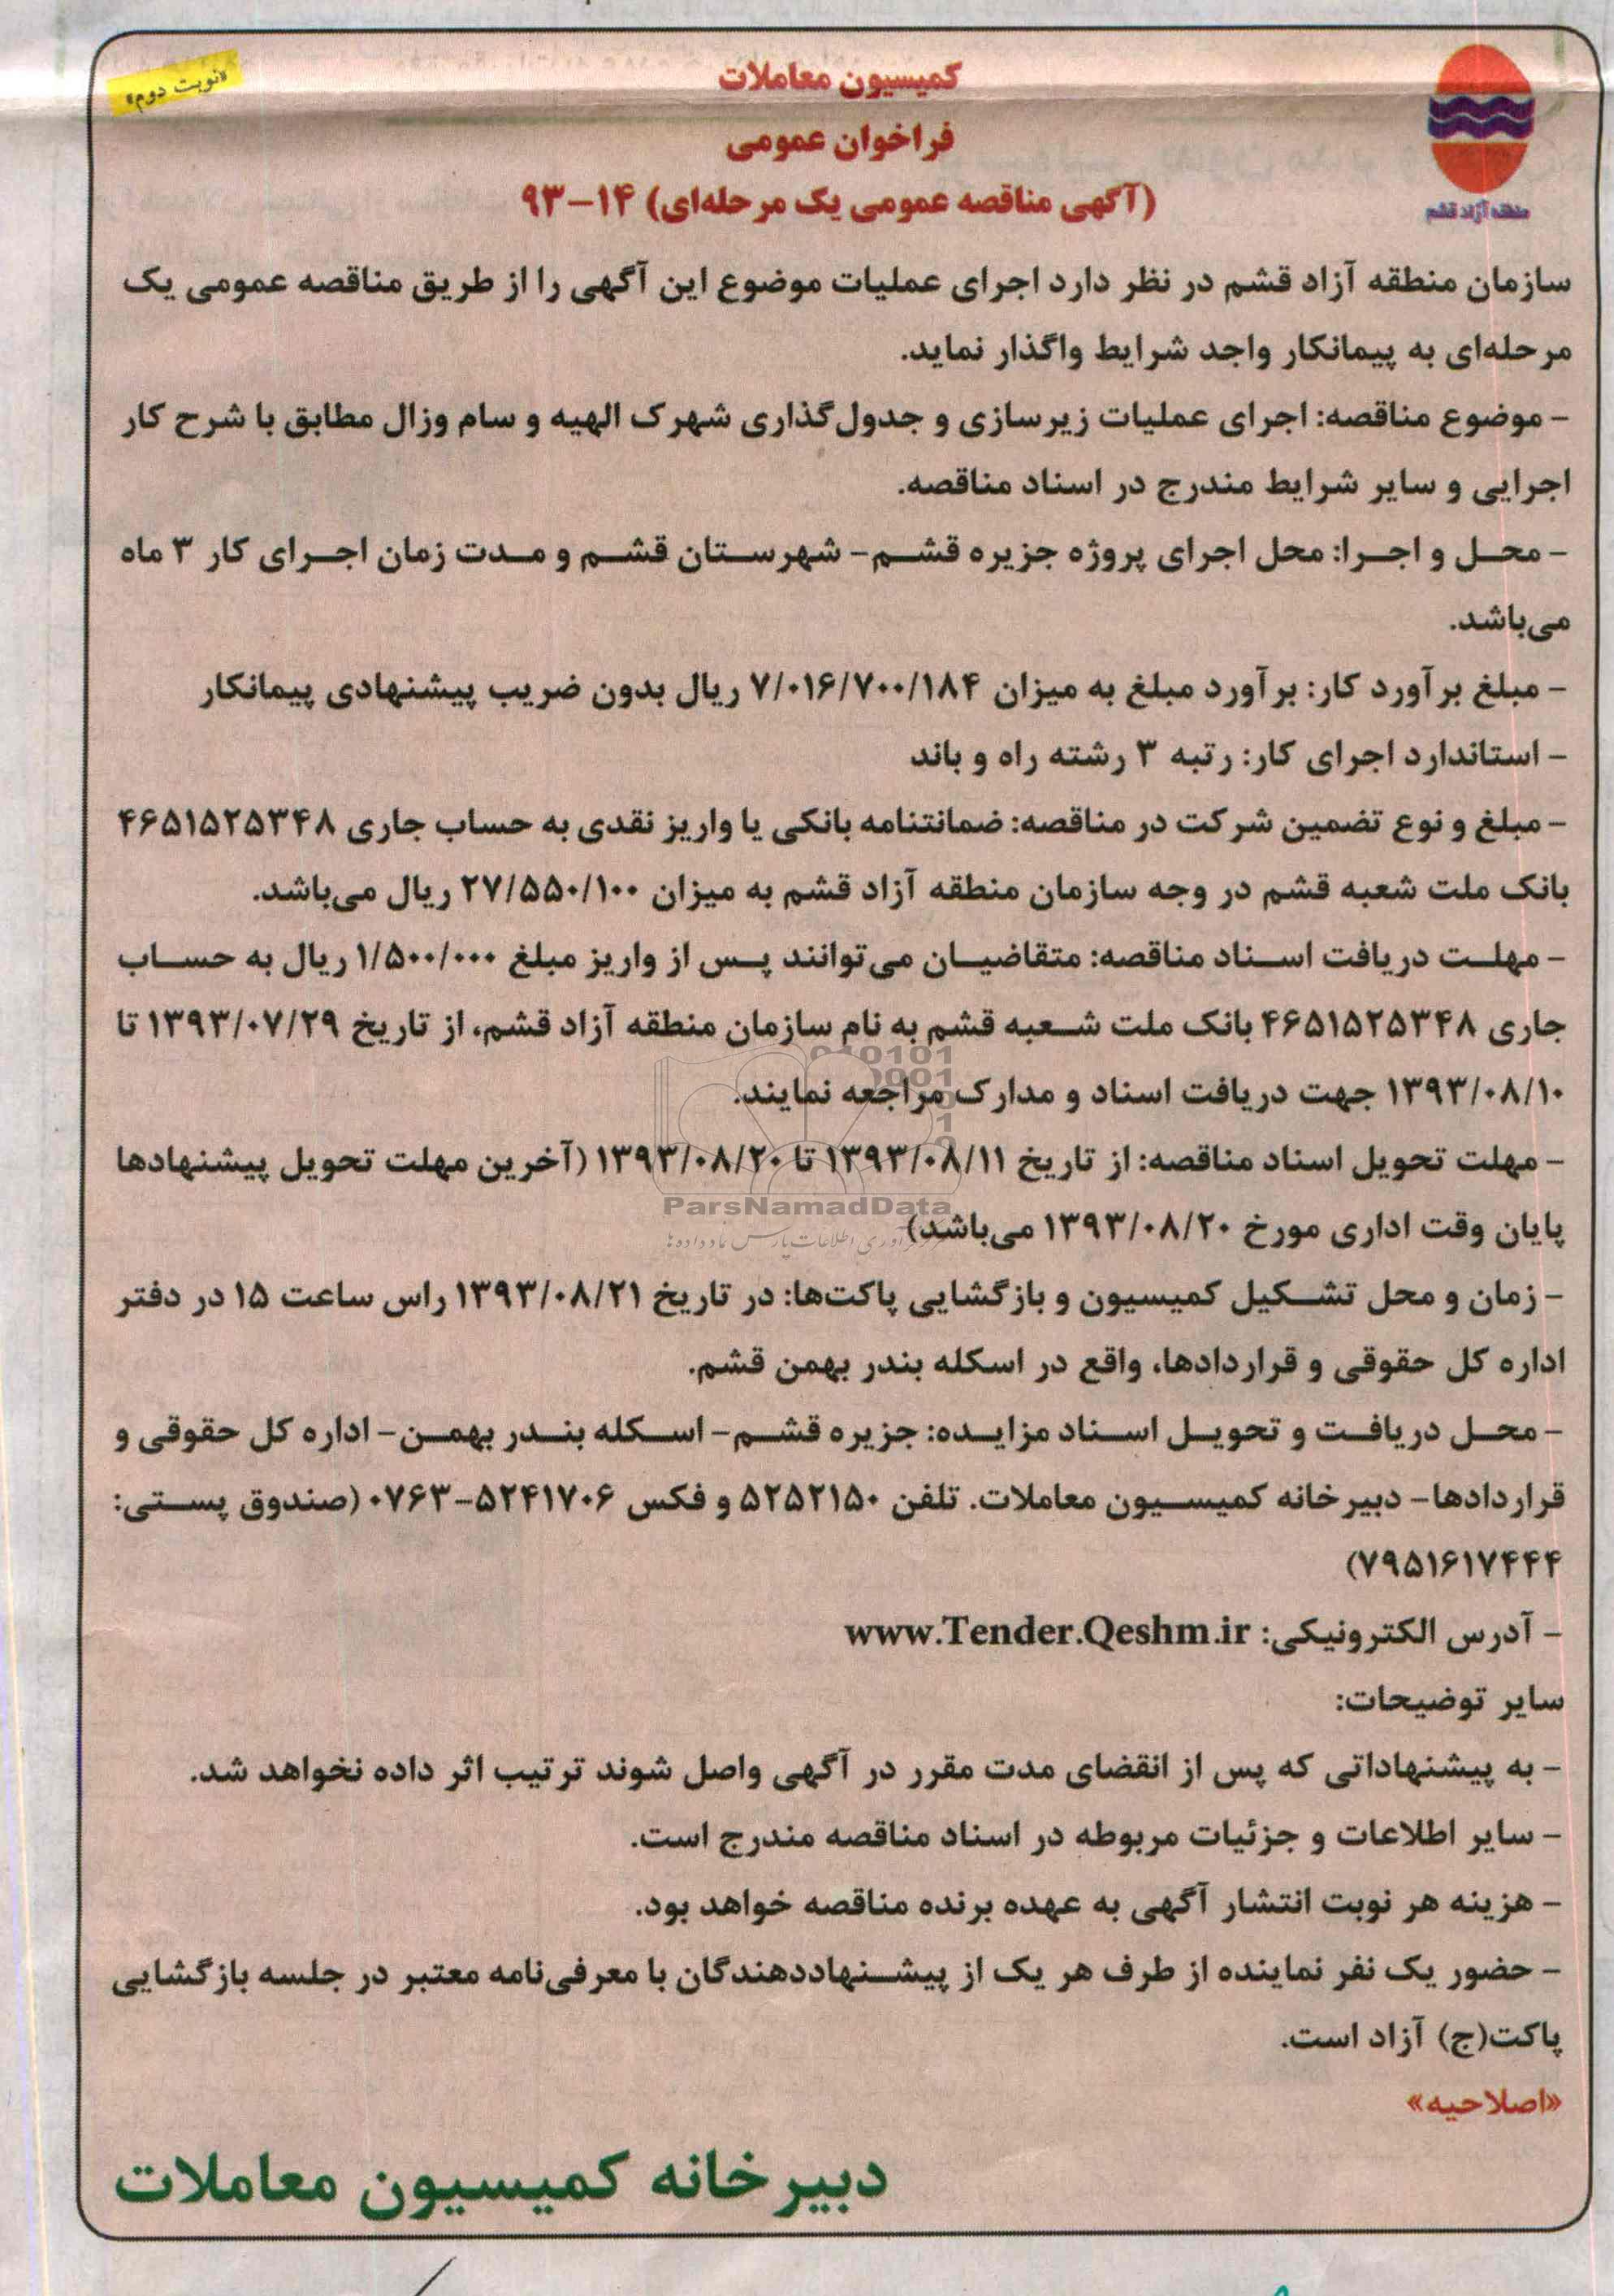 «نوبت دوم»
منطقه آزاد قشم
کمیسیون معاملات
فراخوان عمومی
(آگهی مناقصه عمومی یک مرحله‌ای) ۱۴-۹۳
سازمان منطقه آزاد قشم در نظر دارد اجرای عملیات موضوع این آگهی را از طریق مناقصه عمومی یک
مرحله‌ای به پیمانکار واجد شرایط واگذار نماید.
- موضوع مناقصه: اجرای عملیات زیرسازی و جدول‌گذاری شهرک الهیه و سام وزال مطابق با شرح کار
اجرایی و سایر شرایط مندرج در اسناد مناقصه.
- محل و اجرا: محل اجرای پروژه جزیره قشم- شهرستان قشم و مدت زمان اجرای کار ۳ ماه
می‌باشد.
- مبلغ برآورد کار: برآورد مبلغ به میزان ۷/۰۱۶/۷۰۰/۱۸۴ ریال بدون ضریب پیشنهادی پیمانکار
- استاندارد اجرای کار: رتبه ۳ رشته راه و باند
- مبلغ و نوع تضمین شرکت در مناقصه: ضمانتنامه بانکی یا واریز نقدی به حساب جاری ۴۶۵۱۵۲۵۳۴۸
بانک ملت شعبه قشم در وجه سازمان منطقه آزاد قشم به میزان ۲۷/۵۵۰/۱۰۰ ریال می‌باشد.
- مهلت دریافت اسناد مناقصه: متقاضیان می‌توانند پس از واریز مبلغ ۱/۵۰۰/۰۰۰ ریال به حساب
جاری ۴۶۵۱۵۲۵۳۴۸ بانک ملت شعبه قشم به نام سازمان منطقه آزاد قشم، از تاریخ ۱۳۹۳/۰۷/۲۹ تا
۱۳۹۳/۰۸/۱۰ جهت دریافت اسناد و مدارک مراجعه نمایند.
- مهلت تحویل اسناد مناقصه: از تاریخ ۱۳۹۳/۰۸/۱۱ تا ۱۳۹۳/۰۸/۲۰ (آخرین مهلت تحویل پیشنهادها
ParsNamadData
پایان وقت اداری مورخ ۱۳۹۳/۰۸/۲۰ می‌باشد)
- زمان و محل تشکیل کمیسیون و بازگشایی پاکت‌ها: در تاریخ ۱۳۹۳/۰۸/۲۱ راس ساعت ۱۵ در دفتر
اداره کل حقوقی و قراردادها، واقع در اسکله بندر بهمن قشم.
- محل دریافت و تحویل اسناد مزایده: جزیره قشم- اسکله بندر بهمن- اداره کل حقوقی و
قراردادها- دبیرخانه کمیسیون معاملات. تلفن ۵۲۵۲۱۵۰ و فکس ۵۲۴۱۷۰۶-۰۷۶۳ (صندوق پستی:
۷۹۵۱۶۱۷۴۴۴)
- آدرس الکترونیکی: www.Tender.Qeshm.ir
سایر توضیحات:
- به پیشنهاداتی که پس از انقضای مدت مقرر در آگهی واصل شوند ترتیب اثر داده نخواهد شد.
- سایر اطلاعات و جزئیات مربوطه در اسناد مناقصه مندرج است.
- هزینه هر نوبت انتشار آگهی به عهده برنده مناقصه خواهد بود.
- حضور یک نفر نماینده از طرف هر یک از پیشنهاددهندگان با معرفی‌نامه معتبر در جلسه بازگشایی
پاکت(ج) آزاد است.
«اصلاحیه»
دبیرخانه کمیسیون معاملات